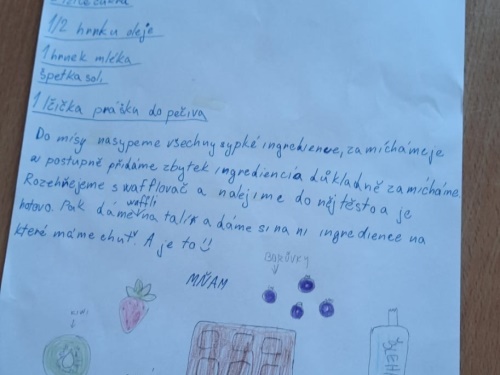 1/2 hrnku oleje
1 hrnek mléka
špetka soli
1 lžička prášku do pečiva
Do mísy nasypeme všechny sypké ingredience, zamícháme je
a postupně přidáme zbytek ingrediencí a důkladně zamícháme.
Rozehřejeme si wafflovač a nalejime do něj těsto a je
hotovo. Pak dáme waffli na talíř a dáme si na ni ingredience na
které máme chuť. A je to
MŇAM
BORŮVKY
KIWI